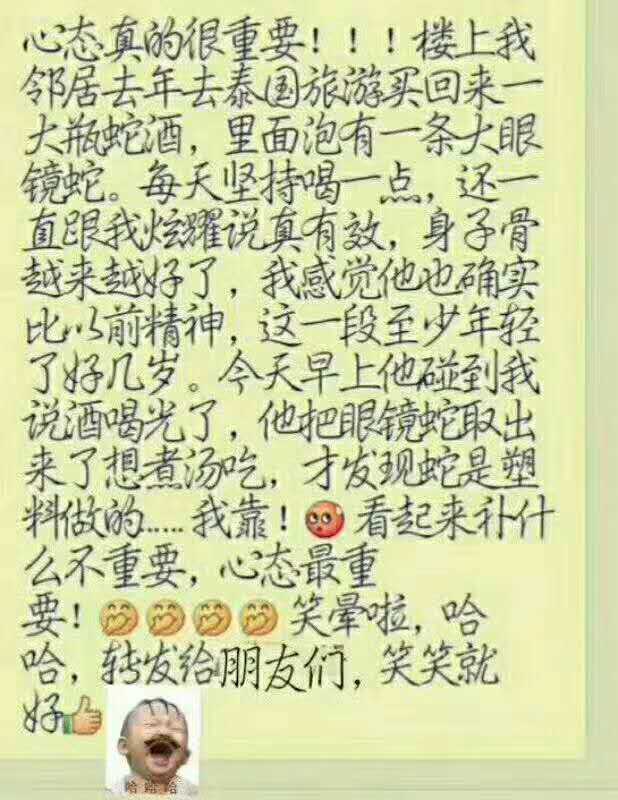 心态真的很重要！！！楼上我
邻居去年去泰国旅游买回来一
大瓶蛇酒，里面泡有一条大眼
镜蛇。每天坚持喝一点，还一
直跟我炫耀说真有效，身子骨
越来越好了，我感觉他也确实
比以前精神，这一段至少年轻
了好几岁。今天早上他碰到我
说酒喝光了，他把眼镜蛇取出
来了想煮汤吃，才发现蛇是塑
料做的.....我靠！看起来补什
么不重要，心态最重
要！笑晕啦，哈
哈，转发给朋友们，笑笑就
好
哈哈哈